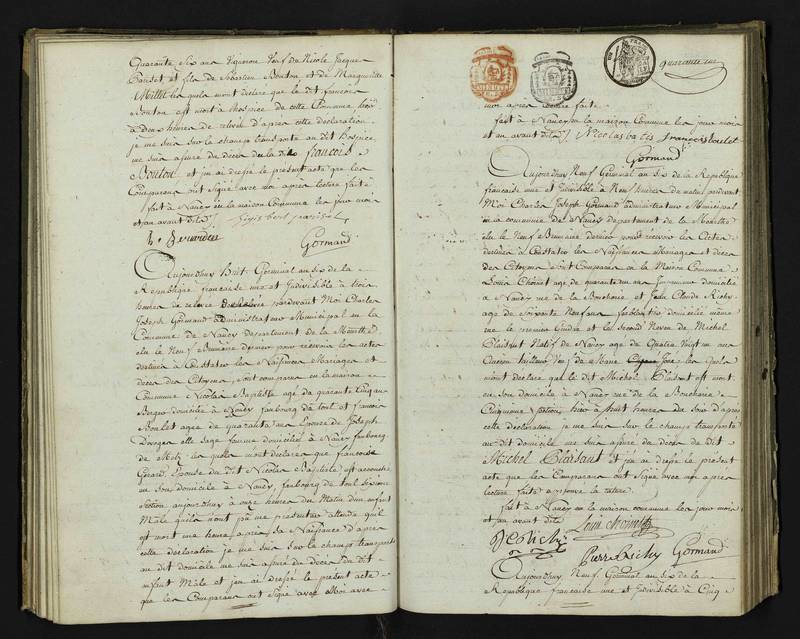 quarante Six ans Vigneron Veuf de Nicole Jacques
et fils de Sébastien Bouton et de Marguerite
Millet les quels mont déclaré que le dit francois
Bouton est mort à hospice de cette Commune hier
à deux heures de relevé d'apres cette déclaration
je me suis sur le champ transporté au dit hospice
me suis assuré du deces du dit francois
Bouton et j'ai dressé le présent acte que les
Comparans ont Signé avec moi après lecture faite
fait à Nancy en la maison Commune les jour mois
et an avant dits
Gormand
Aujourdhuy huit Germinal an six de la
République francaise une et Indivisible à trois
heures de relevée pardevant Moi Charles
Joseph Gormand administrateur Municipal en la
Commune de Nancy departement de la Meurthe
elu le Neuf Brumaire dernier pour recevoir les actes
destinés à Constater les Naissances Mariages et
deces des Citoyens, sont comparus en la maison
Commune Nicolas Baptiste agé de quarante cinq ans
Berger domicilié à Nancy faubourg de toul et francois
Boulet agée de quarante ans Epouse de Joseph
elle Sage femme domiciliée à Nancy faubourg
de Metz les quels mont déclaré que francoise
Gerard, Epouse du dit Nicolas Baptiste est accouchée
en son domicile à Nancy, faubourg de toul sixieme
Section aujourdhuy à onze heures du Matin d'un enfant
Mâle quels n'ont pû me présenter attendu qu'il
est mort une heure après sa Naissance d'apres
cette déclaration je me suis sur le champ transporté
au dit domicile me suis assuré du deces du dit
enfant Mâle et j'en ai dressé le présent acte
que les Comparans ont Signé avec Moi avec
quarante un
moi après lecture faite
fait à Nancy en la maison Commune les jour mois
et an avant dits Nicolas batis françois boulet
Gormand
Aujourdhuy Neuf Germinal an six de la République
francaise une et Indivisible à Neuf heures du matin pardevant
Moi Charles Joseph Gormand administrateur Municipal
en la commune de Nancy departement de la Meurthe
elu le Neuf Brumaire dernier pour recevoir les Actes
destinés à Constater les Naissances Mariages et deces
des Citoyens sont Comparus en la Maison Commune
Louis agé de quarante un ans domicilié
à Nancy rue de la Boucherie et Jean Claude Richy
agé de Soixante Neuf ans ferblantier domicilié même
rue le premier Gendre et le second Neveu de Michel
Plaisant Natif de Nancy agé de Quatre Vingt un ans
ancien tailleur Veuf de Marie les quels
mont déclaré que le dit Michel Plaisant est mort
en son domicile à Nancy rue de la Boucherie
Cinquieme Section, hier à huit heures du soir d'apres
cette déclaration je me suis sur le champ transporté
au dit domicile me suis assuré du deces du dit
Michel Plaisant et j'en ai dressé le présent
acte que les Comparans ont Signé avec moi après
lecture faite
fait à Nancy en la maison commune les jour mois
et an avant dits
Richy
Pierre Richy Gormand
Aujourdhuy Neuf Germinal an six de la
République francaise une et Indivisible à Cinq